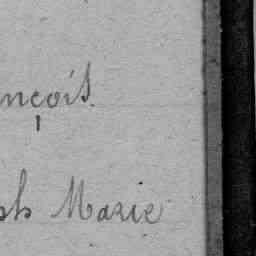 nçois.
ph Marie